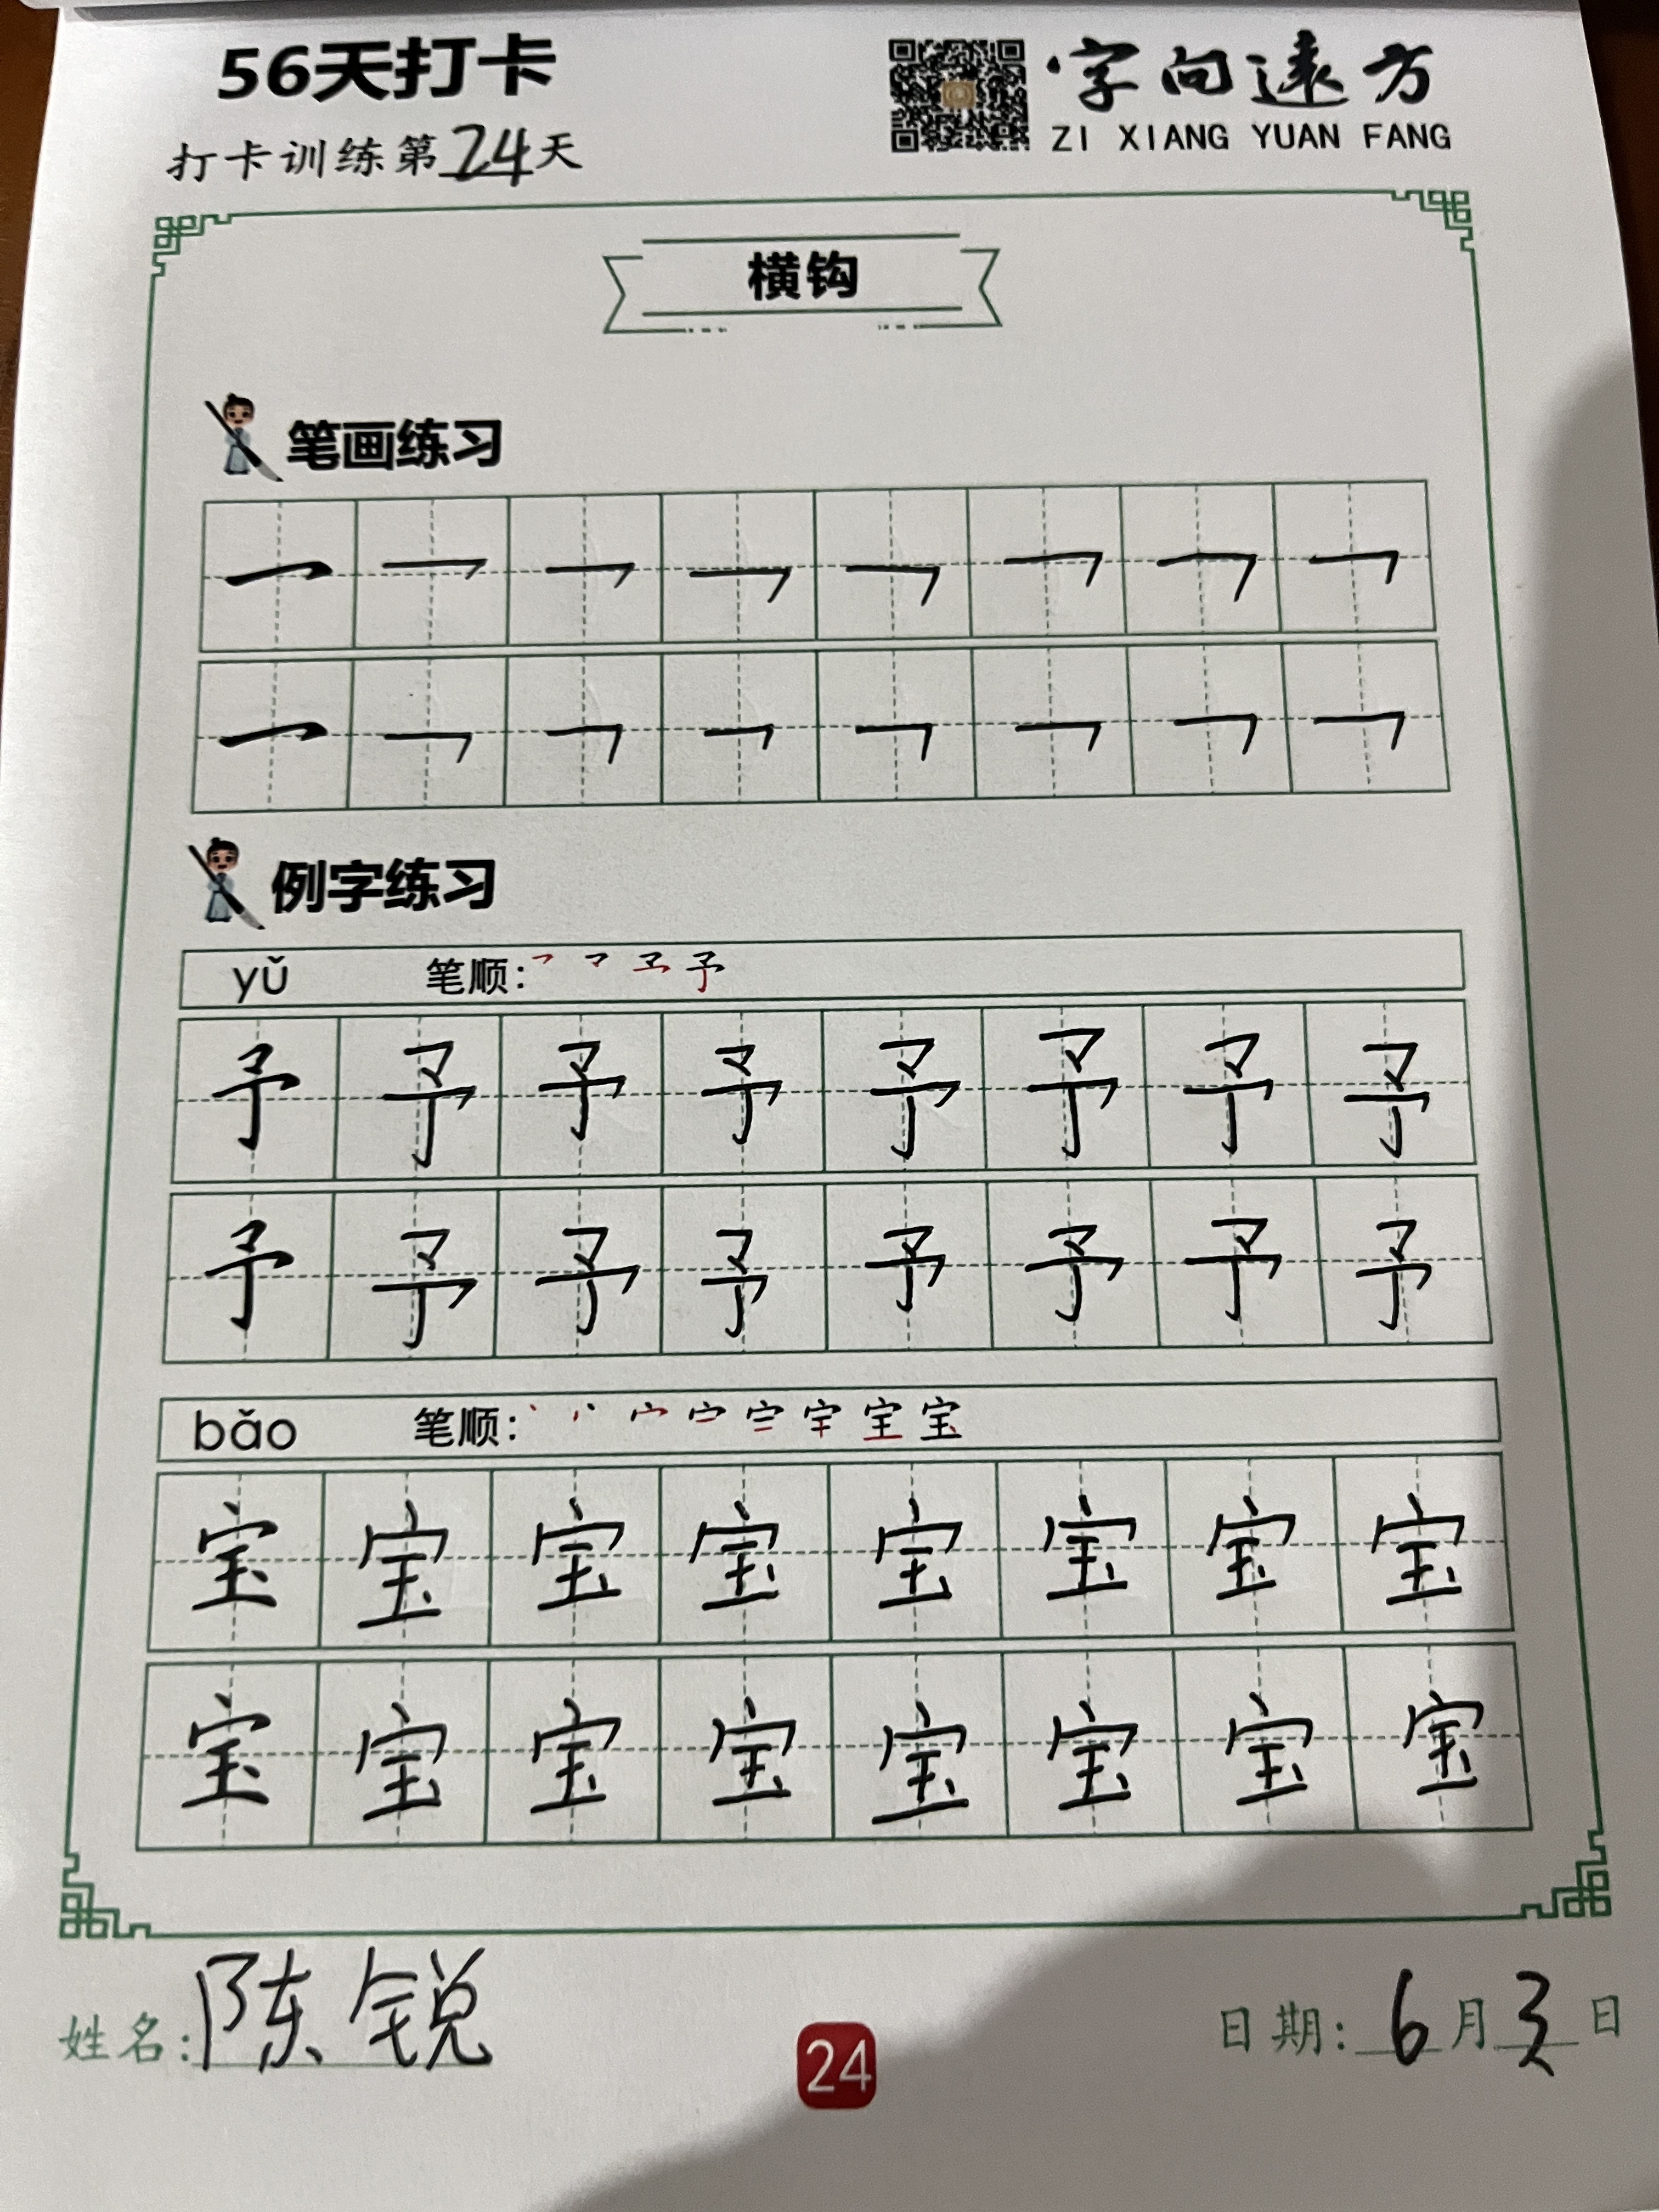 56天打卡
字向遠方
ZI XIANG YUAN FANG
打卡训练第24天
横钩
笔画练习
例字练习
yǔ 笔顺:
予 予 予 予 予 予 予 予
予 予 予 予 予 予 予 予
bǎo 笔顺:
宝 宝 宝 宝 宝 宝 宝 宝
宝 宝 宝 宝 宝 宝 宝 宝
姓名:陈锐
24
日期:6月3日